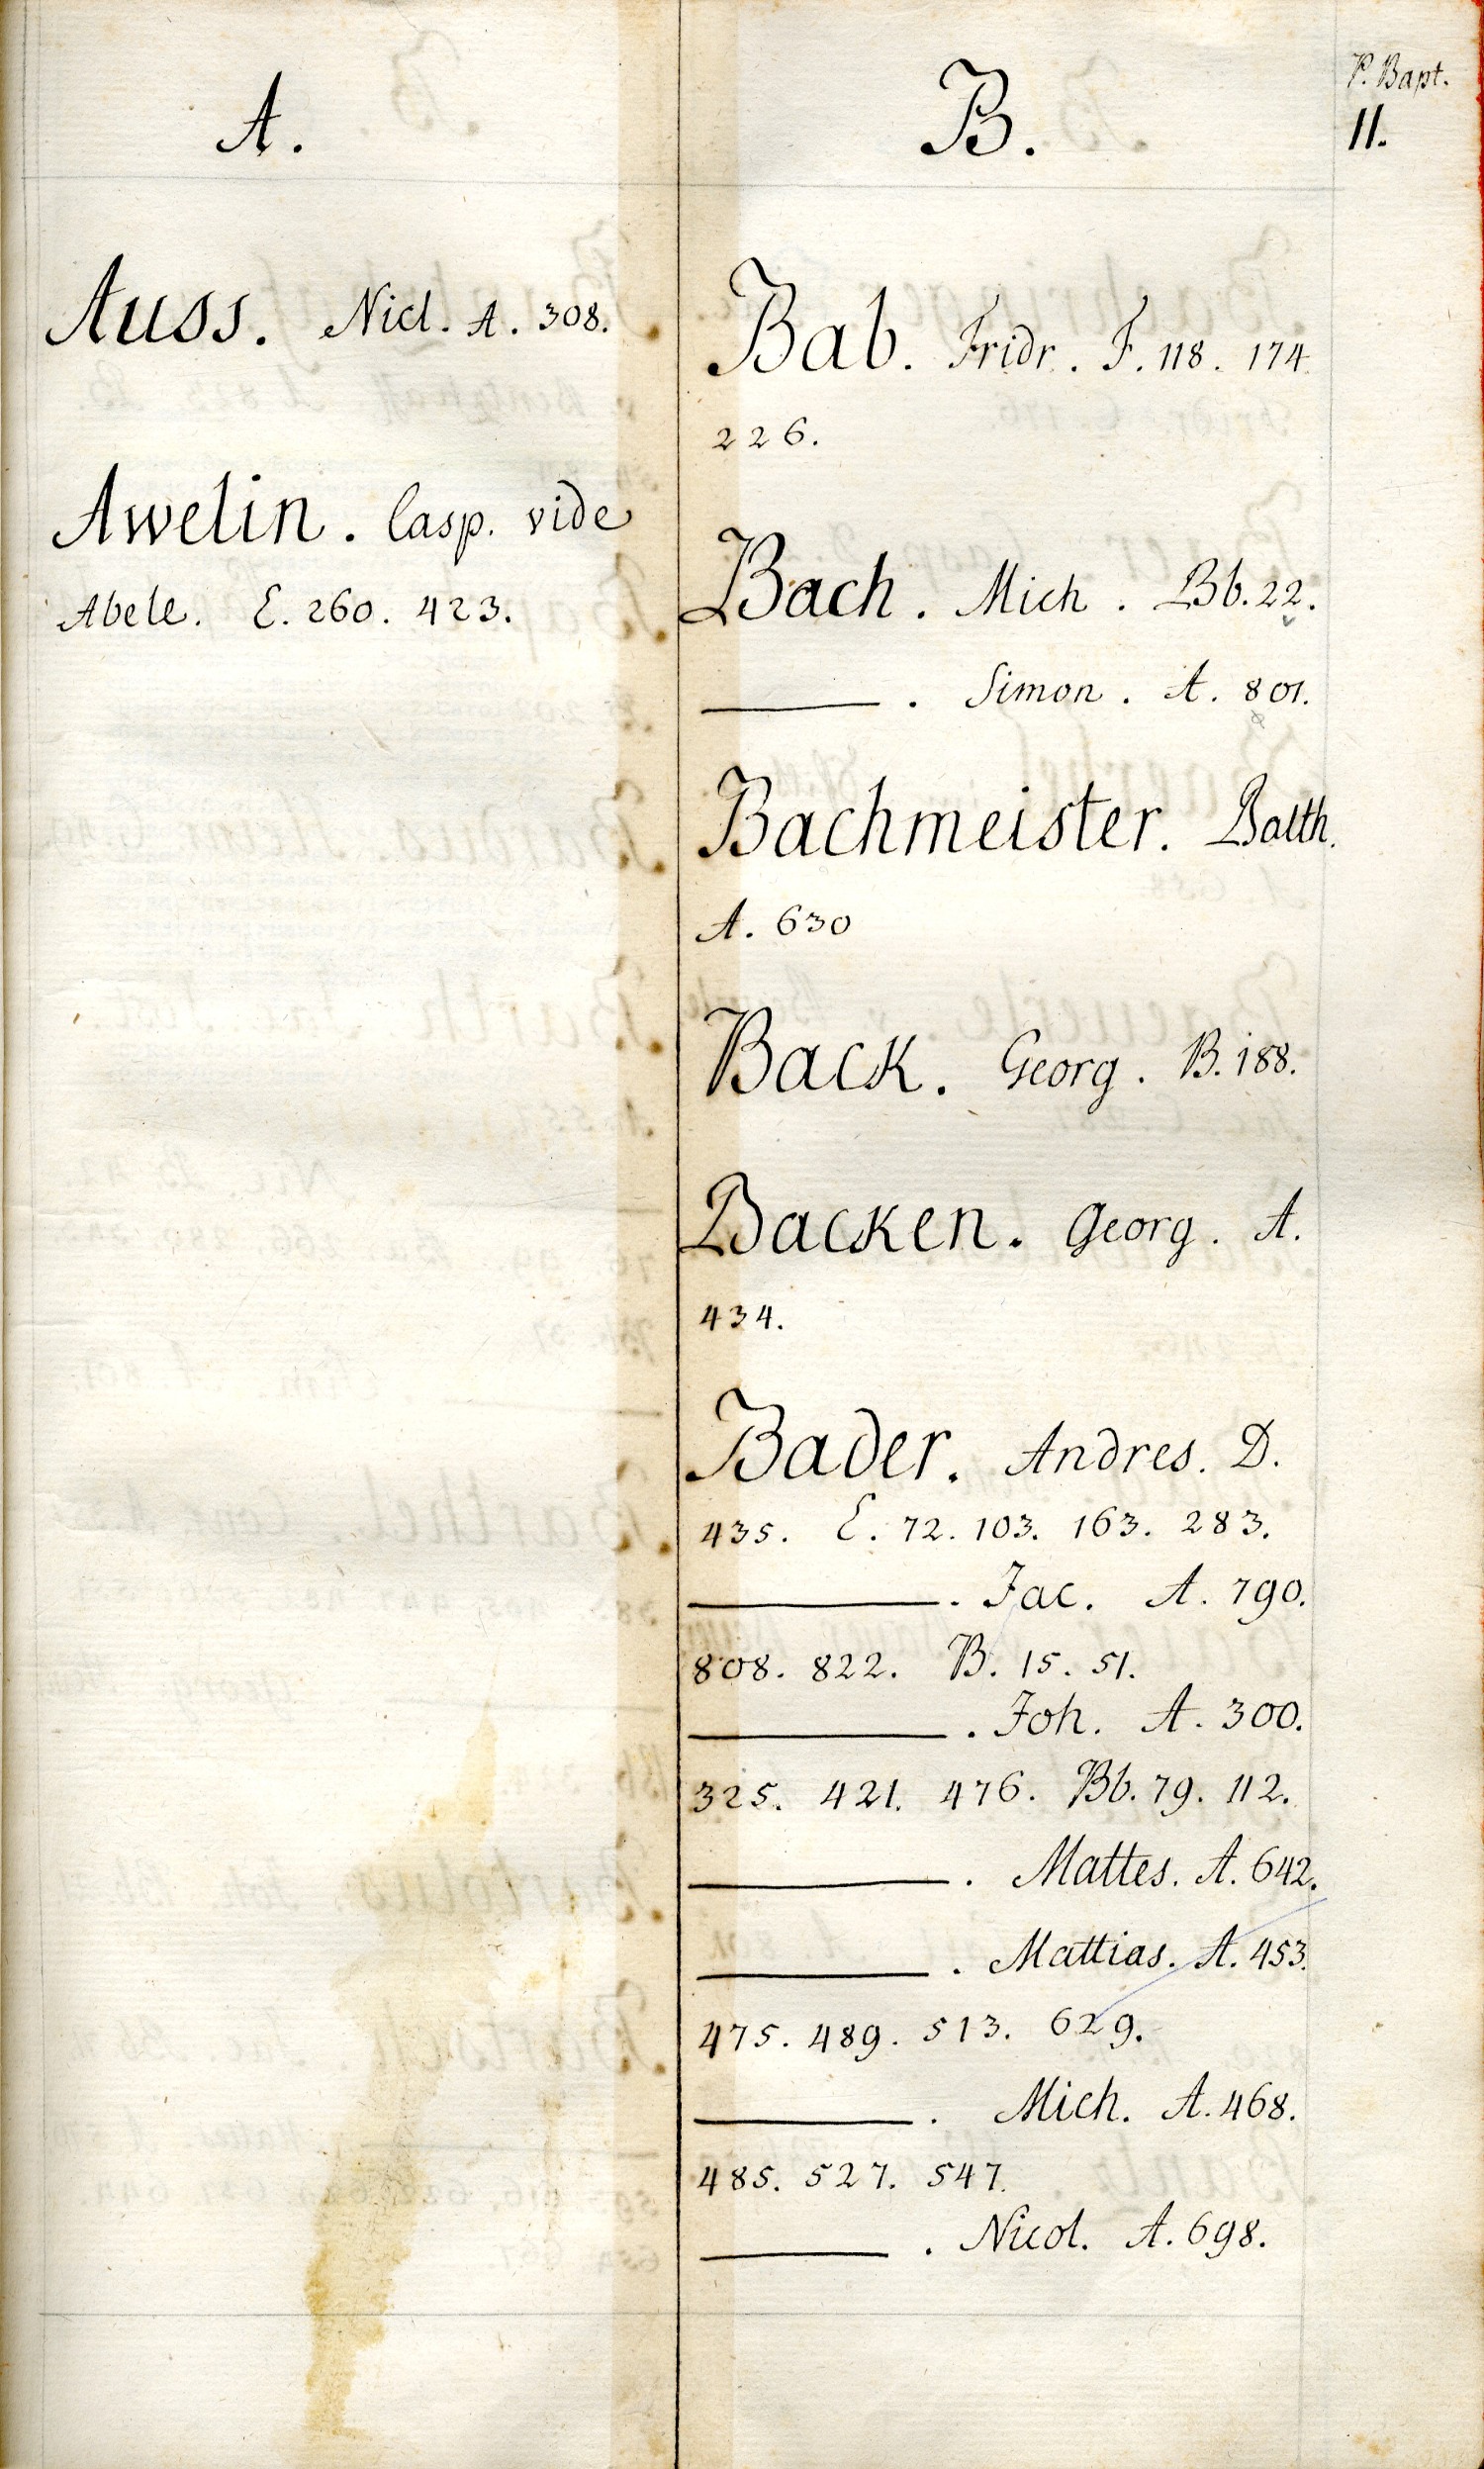 P. Bapt.
11.
A.
Auss. Nicl. A. 308.
Awelin. Casp. vide
Abele. E. 260. 423.
B.
Bab. Fridr. F. 118. 174.
226.
Bach. Mich. Bb. 22.
———. Simon. A. 801.
Bachmeister. Balth.
A. 630
Back. Georg. B. 188.
Backen. Georg. A.
434.
Bader. Andres. D.
435. E. 72. 103. 163. 283.
———. Jac. A. 790.
808. 822. B. 15. 51.
———. Joh. A. 300.
325. 421. 476. Bb. 79. 112.
———. Mattes. A. 642.
———. Mattias. A. 453.
475. 489. 513. 629.
———. Mich. A. 468.
485. 527. 547.
———. Nicol. A. 698.